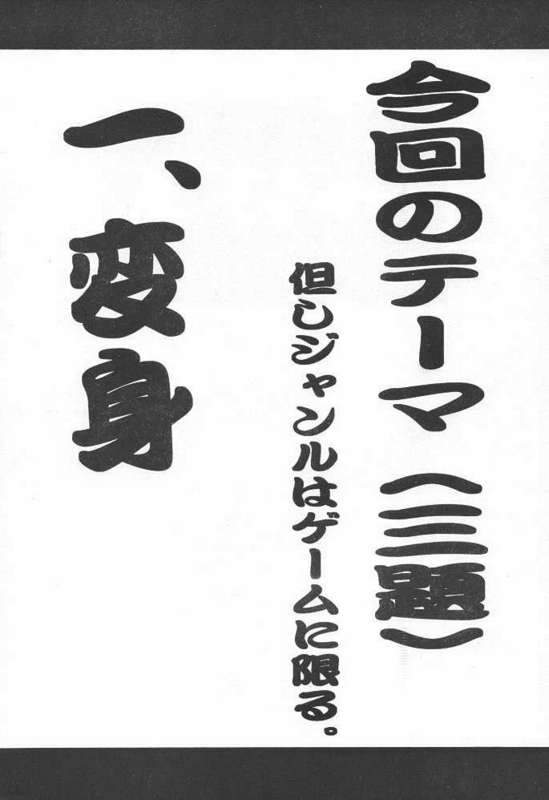 今回のテーマ(三題)
但しジャンルはゲームに限る。
一、変身